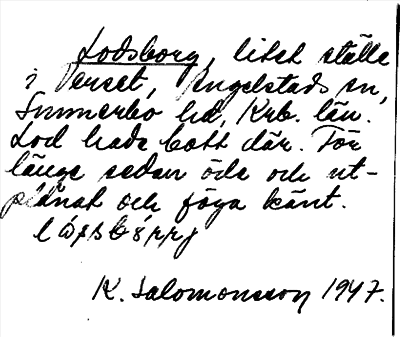 Lodsborg, litet ställe
i Verset, Angelstads sn,
Sunnerbo hd, Krb. län.
Lod hade bott där. För
länge sedan öde och ut-
plånat och föga känt.
K. Salomonsson 1947.